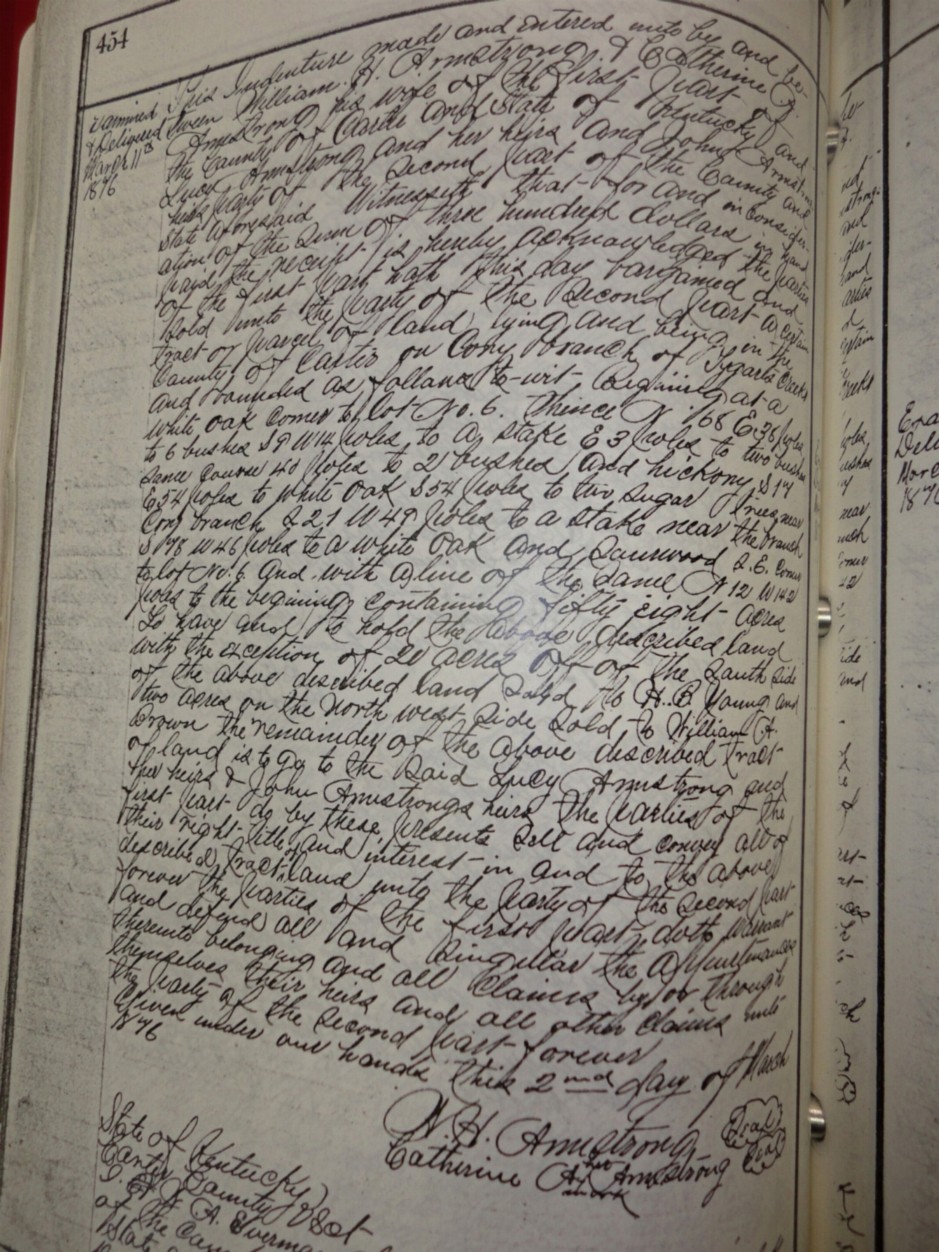 454
Examined
& Delivered
March 11th
1876
This Indenture made and entered into by and be-
tween William H. Armstrong & Catherine
Armstrong his wife of the first part of
the County of Carter and State of Kentucky and
Lucy Armstrong and her heirs and John Armstrong
heirs party of the second part of the County and
State aforesaid Witnesseth that for and in consider-
ation of the sum of three hundred dollars in hand
paid the receipt is hereby acknowledged the parties
of the first part hath this day bargained and
sold unto the party of the second part a certain
tract or parcel of land lying and being in the
County of Carter on Cory branch of Tygarts Creek
and bounded as follows to-wit Begining at a
white oak corner to lot No. 6. Thence N 68 E 38 poles
to 6 bushes S 9 W 14 poles to a stake E 3 poles to two bushes
same course 40 poles to 2 bushes and hickory S 17
E 54 poles to white oak S 54 poles to two sugar trees near
Cory branch S 21 W 49 poles to a stake near the branch
S 78 W 46 poles to a white oak and Sourwood S.E. corner
to lot No. 6 and with a line of the same N 12 W 142
poles to the begining containing fifty eight acres
To have and to hold the above described land
with the exception of 20 acres off of the South side
of the above described land sold to H. B Young and
two acres on the North west side sold to William A.
Brown the remainder of the above described tract
of land is to go to the said Lucy Armstrong and
her heirs & John Armstrongs heirs The parties of the
first part do by these presents sell and convey all of
their right title and interest in and to the above
described tract land unto the party of the second part
forever the parties of the first part doth warrant
and defend all and singular the appurtenances
thereunto belonging and all claims by or through
themselves their heirs and all other claims unto
the party of the second part forever
Given under our hands this 2nd day of March
1876
W. H. Armstrong Seal
Catherine her Armstrong Seal
mark
State of Kentucky
Carter County Sct
I. A. Everman
of the
State